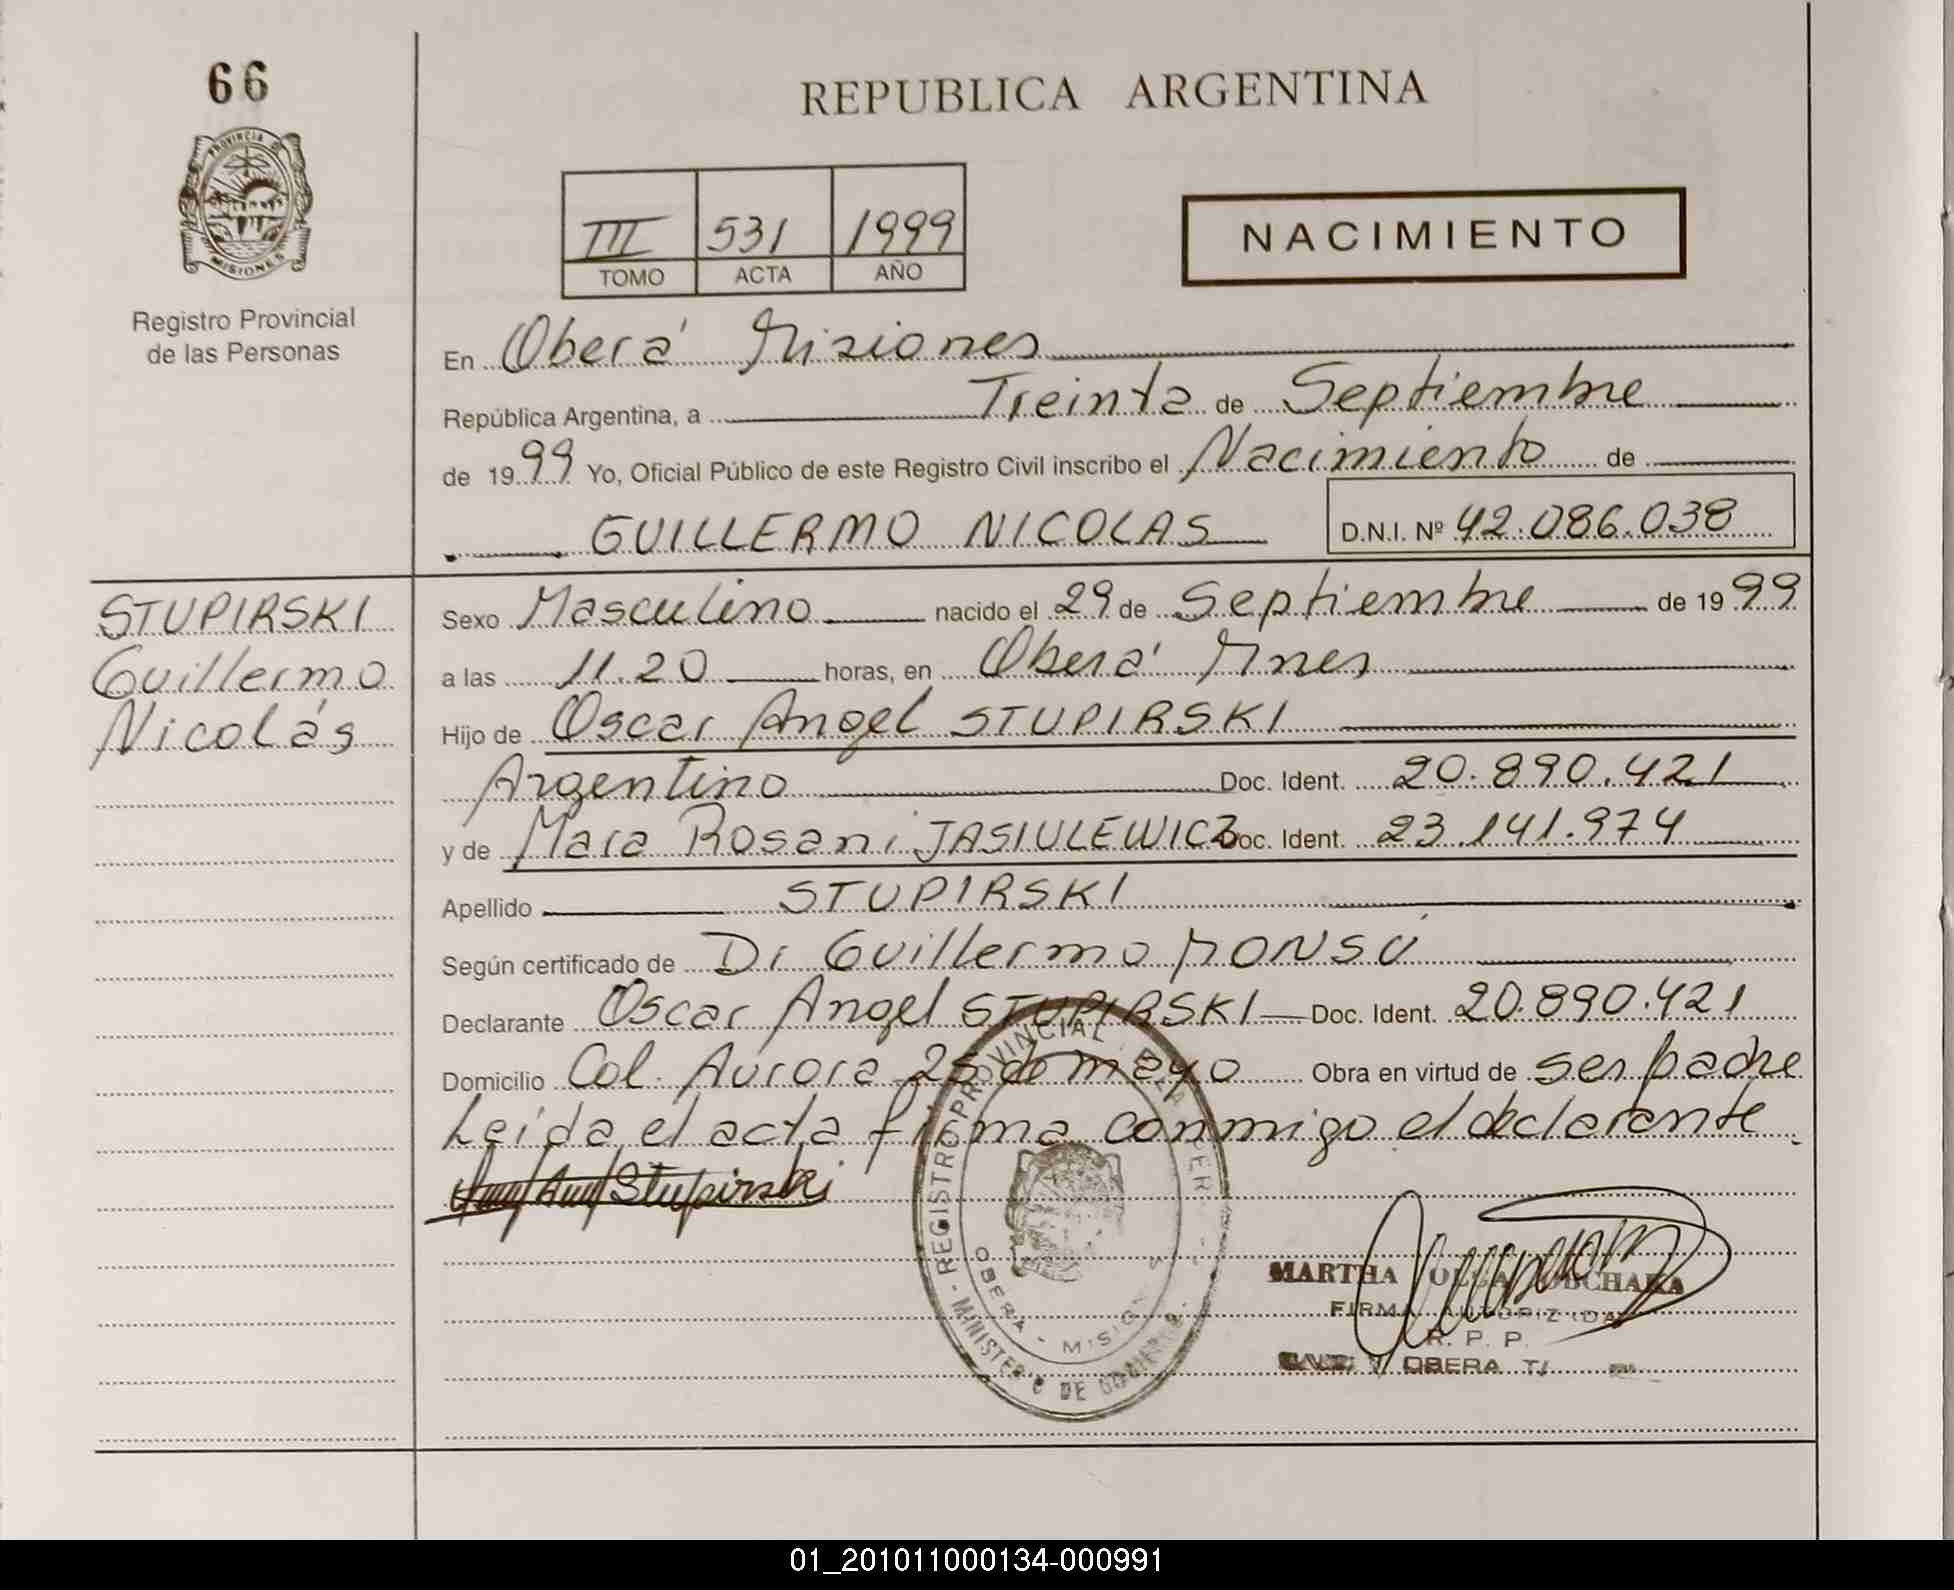 66
PROVINCIA DE
MISIONES
Registro Provincial
de las Personas
REPUBLICA ARGENTINA
III 531 1999
TOMO ACTA AÑO
NACIMIENTO
En Oberá Misiones
República Argentina, a Treinta de Septiembre
de 1999 Yo, Oficial Público de este Registro Civil inscribo el Nacimiento de
GUILLERMO NICOLAS D.N.I. Nº 42.086.038
STUPIRSKI
Guillermo
Nicolás
Sexo Masculino nacido el 29 de Septiembre de 1999
a las 11.20 horas, en Oberá Mnes
Hijo de Oscar Angel STUPIRSKI
Argentino Doc. Ident. 20.890.421
y de Mara Rosani JASIULEWICZ Doc. Ident. 23.141.974
Apellido STUPIRSKI
Según certificado de Dr Guillermo MONSÚ
Declarante Oscar Angel STUPIRSKI Doc. Ident. 20.890.421
Domicilio Col. Aurora 25 de mayo Obra en virtud de ser padre
Leída el acta firma conmigo el declarante
Stupirski
REGISTRO PROVINCIAL DE LAS PER
MINISTERIO DE GOBIERNO
OBERA - MISIONES
MARTHA OLGA
FIRMA AUTORIZADA
R. P. P.
OBERA
01_201011000134-000991